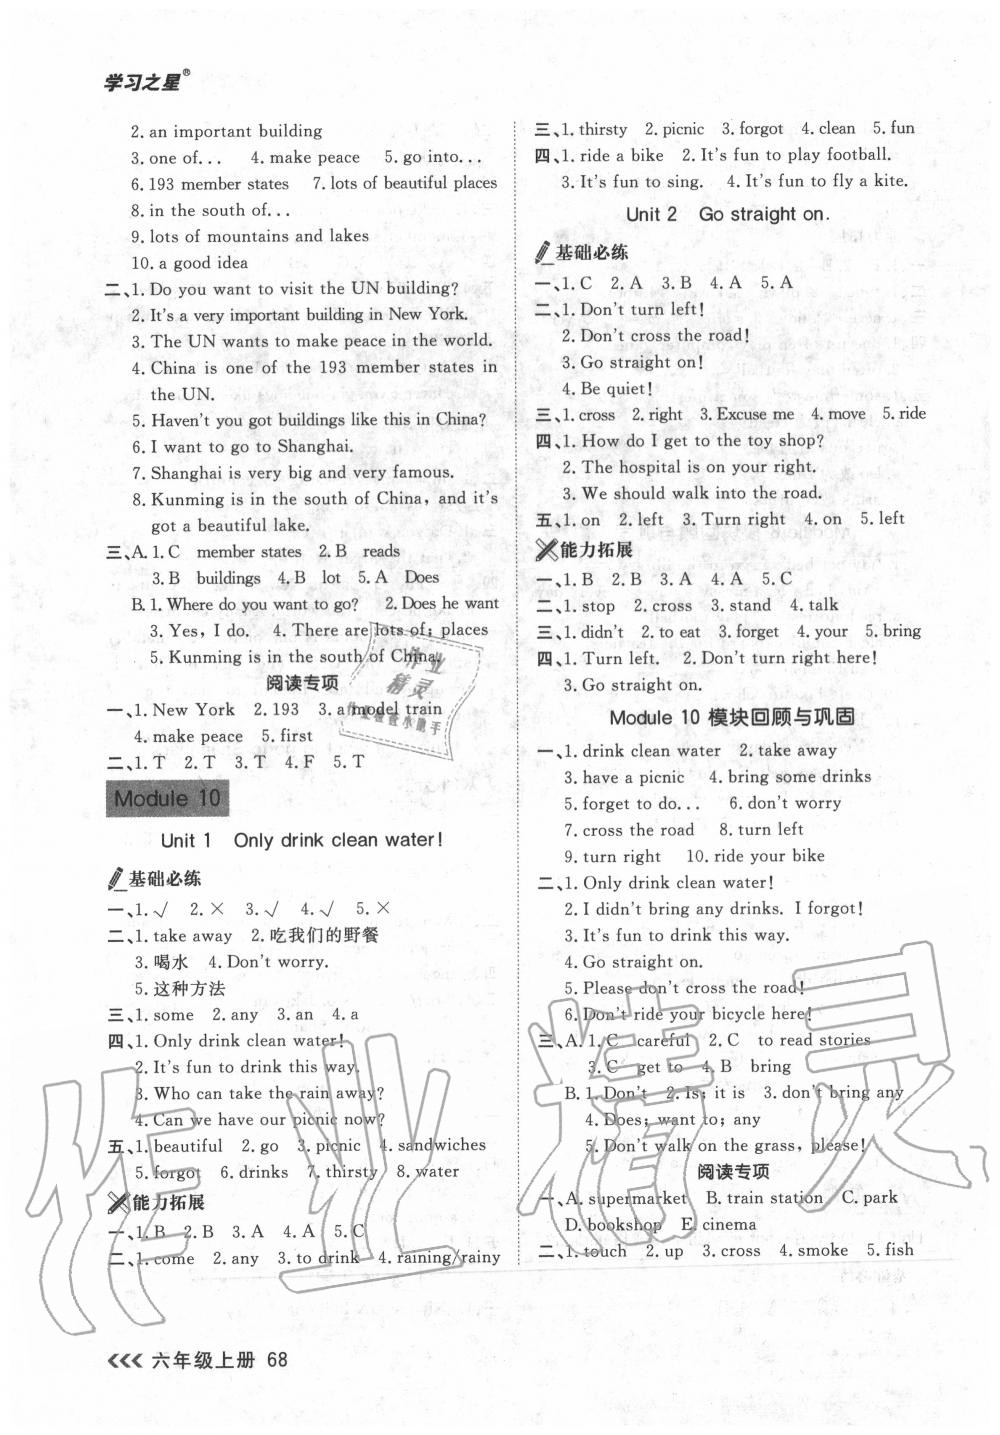 学习之星®
2. an important building
3. one of... 4. make peace 5. go into...
6. 193 member states 7. lots of beautiful places
8. in the south of...
9. lots of mountains and lakes
10. a good idea
二、1. Do you want to visit the UN building?
2. It's a very important building in New York.
3. The UN wants to make peace in the world.
4. China is one of the 193 member states in
the UN.
5. Haven't you got buildings like this in China?
6. I want to go to Shanghai.
7. Shanghai is very big and very famous.
8. Kunming is in the south of China, and it's
got a beautiful lake.
三、A. 1. C member states 2. B reads
3. B buildings 4. B lot 5. A Does
B. 1. Where do you want to go? 2. Does he want
3. Yes, I do. 4. There are lots of; places
5. Kunming is in the south of China.
阅读专项
一、1. New York 2. 193 3. a model train
4. make peace 5. first
二、1. T 2. T 3. T 4. F 5. T
Module 10
Unit 1 Only drink clean water!
基础必练
一、1. √ 2. × 3. √ 4. √ 5. ×
二、1. take away 2. 吃我们的野餐
3. 喝水 4. Don't worry.
5. 这种方法
三、1. some 2. any 3. an 4. a
四、1. Only drink clean water!
2. It's fun to drink this way.
3. Who can take the rain away?
4. Can we have our picnic now?
五、1. beautiful 2. go 3. picnic 4. sandwiches
5. forgot 6. drinks 7. thirsty 8. water
能力拓展
一、1. B 2. B 3. A 4. A 5. C
二、1. come 2. any 3. to drink 4. raining/rainy
三、1. thirsty 2. picnic 3. forgot 4. clean 5. fun
四、1. ride a bike 2. It's fun to play football.
3. It's fun to sing. 4. It's fun to fly a kite.
Unit 2 Go straight on.
基础必练
一、1. C 2. A 3. B 4. A 5. A
二、1. Don't turn left!
2. Don't cross the road!
3. Go straight on!
4. Be quiet!
三、1. cross 2. right 3. Excuse me 4. move 5. ride
四、1. How do I get to the toy shop?
2. The hospital is on your right.
3. We should walk into the road.
五、1. on 2. left 3. Turn right 4. on 5. left
能力拓展
一、1. B 2. B 3. A 4. A 5. C
二、1. stop 2. cross 3. stand 4. talk
三、1. didn't 2. to eat 3. forget 4. your 5. bring
四、1. Turn left. 2. Don't turn right here!
3. Go straight on.
Module 10 模块回顾与巩固
一、1. drink clean water 2. take away
3. have a picnic 4. bring some drinks
5. forget to do... 6. don't worry
7. cross the road 8. turn left
9. turn right 10. ride your bike
二、1. Only drink clean water!
2. I didn't bring any drinks. I forgot!
3. It's fun to drink this way.
4. Go straight on.
5. Please don't cross the road!
6. Don't ride your bicycle here!
三、A. 1. C careful 2. C to read stories
3. C get to 4. B bring
B. 1. Don't 2. Is; it is 3. don't bring any
4. Does; want to; any
5. Don't walk on the grass, please!
阅读专项
一、A. supermarket B. train station C. park
D. bookshop E. cinema
二、1. touch 2. up 3. cross 4. smoke 5. fish
六年级上册 68
作业精灵
作业
精灵
作业检查小助手